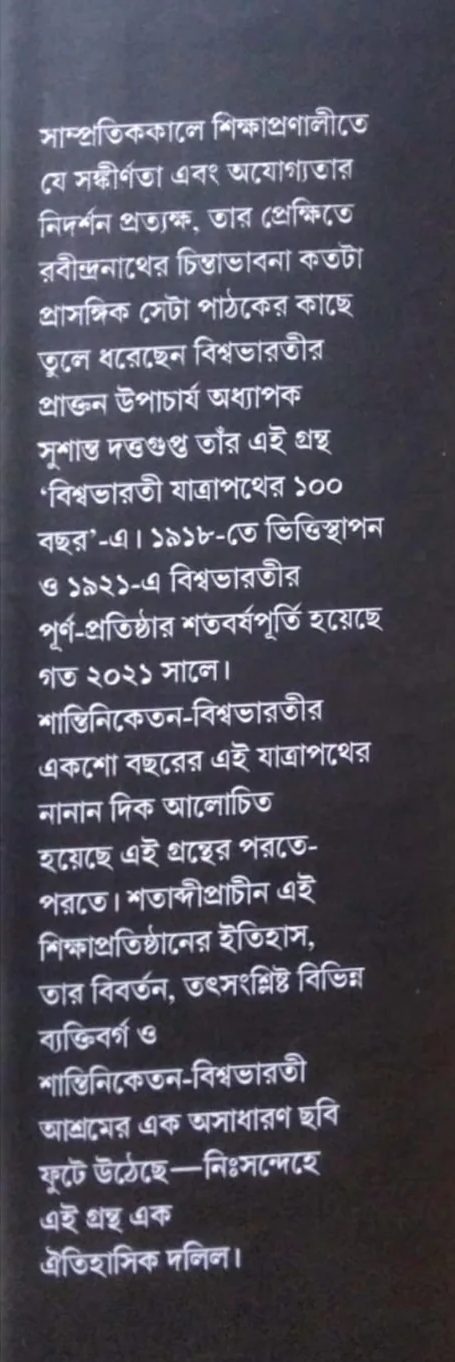 সাম্প্রতিককালে শিক্ষাপ্রণালীতে
যে সঙ্কীর্ণতা এবং অযোগ্যতার
নিদর্শন প্রত্যক্ষ, তার প্রেক্ষিতে
রবীন্দ্রনাথের চিন্তাভাবনা কতটা
প্রাসঙ্গিক সেটা পাঠকের কাছে
তুলে ধরেছেন বিশ্বভারতীর
প্রাক্তন উপাচার্য অধ্যাপক
সুশান্ত দত্তগুপ্ত তাঁর এই গ্রন্থ
‘বিশ্বভারতী যাত্রাপথের ১০০
বছর’-এ। ১৯১৮-তে ভিত্তিস্থাপন
ও ১৯২১-এ বিশ্বভারতীর
পূর্ণ-প্রতিষ্ঠার শতবর্ষপূর্তি হয়েছে
গত ২০২১ সালে।
শান্তিনিকেতন-বিশ্বভারতীর
একশো বছরের এই যাত্রাপথের
নানান দিক আলোচিত
হয়েছে এই গ্রন্থের পরতে-
পরতে। শতাব্দীপ্রাচীন এই
শিক্ষাপ্রতিষ্ঠানের ইতিহাস,
তার বিবর্তন, তৎসংশ্লিষ্ট বিভিন্ন
ব্যক্তিবর্গ ও
শান্তিনিকেতন-বিশ্বভারতী
আশ্রমের এক অসাধারণ ছবি
ফুটে উঠেছে—নিঃসন্দেহে
এই গ্রন্থ এক
ঐতিহাসিক দলিল।